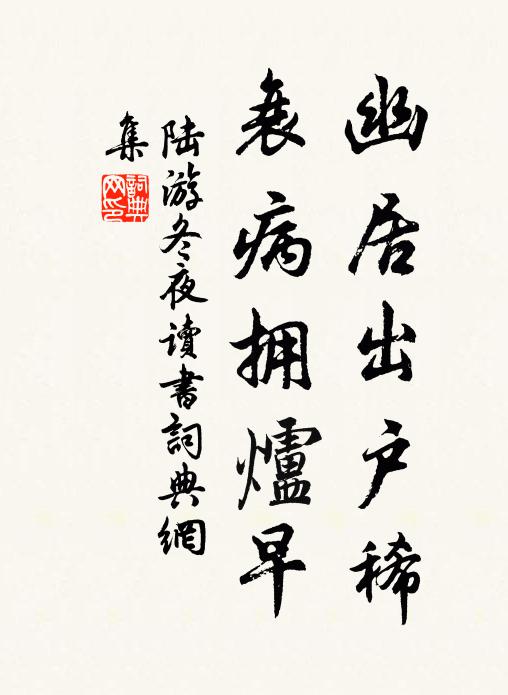 幽居出户稀
衰病拥爐早
陸游冬夜讀書詞典網
集
詞典
网印